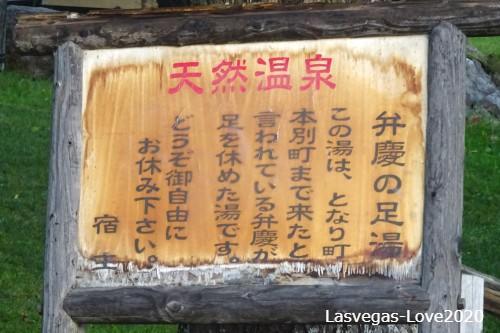 天然温泉
弁慶の足湯
この湯は、となり町
本別町まで来たと
言われている弁慶が
足を休めた湯です。
どうぞ御自由に
お休み下さい。
宿主
Lasvegas-Love2020